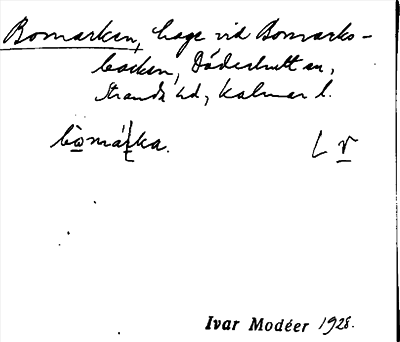 Bomarken, hage vid Bomarks-
backen, Döderhult sn,
Strands hd, Kalmar l.
bo̱márka. L v̱
Ivar Modéer 1928.